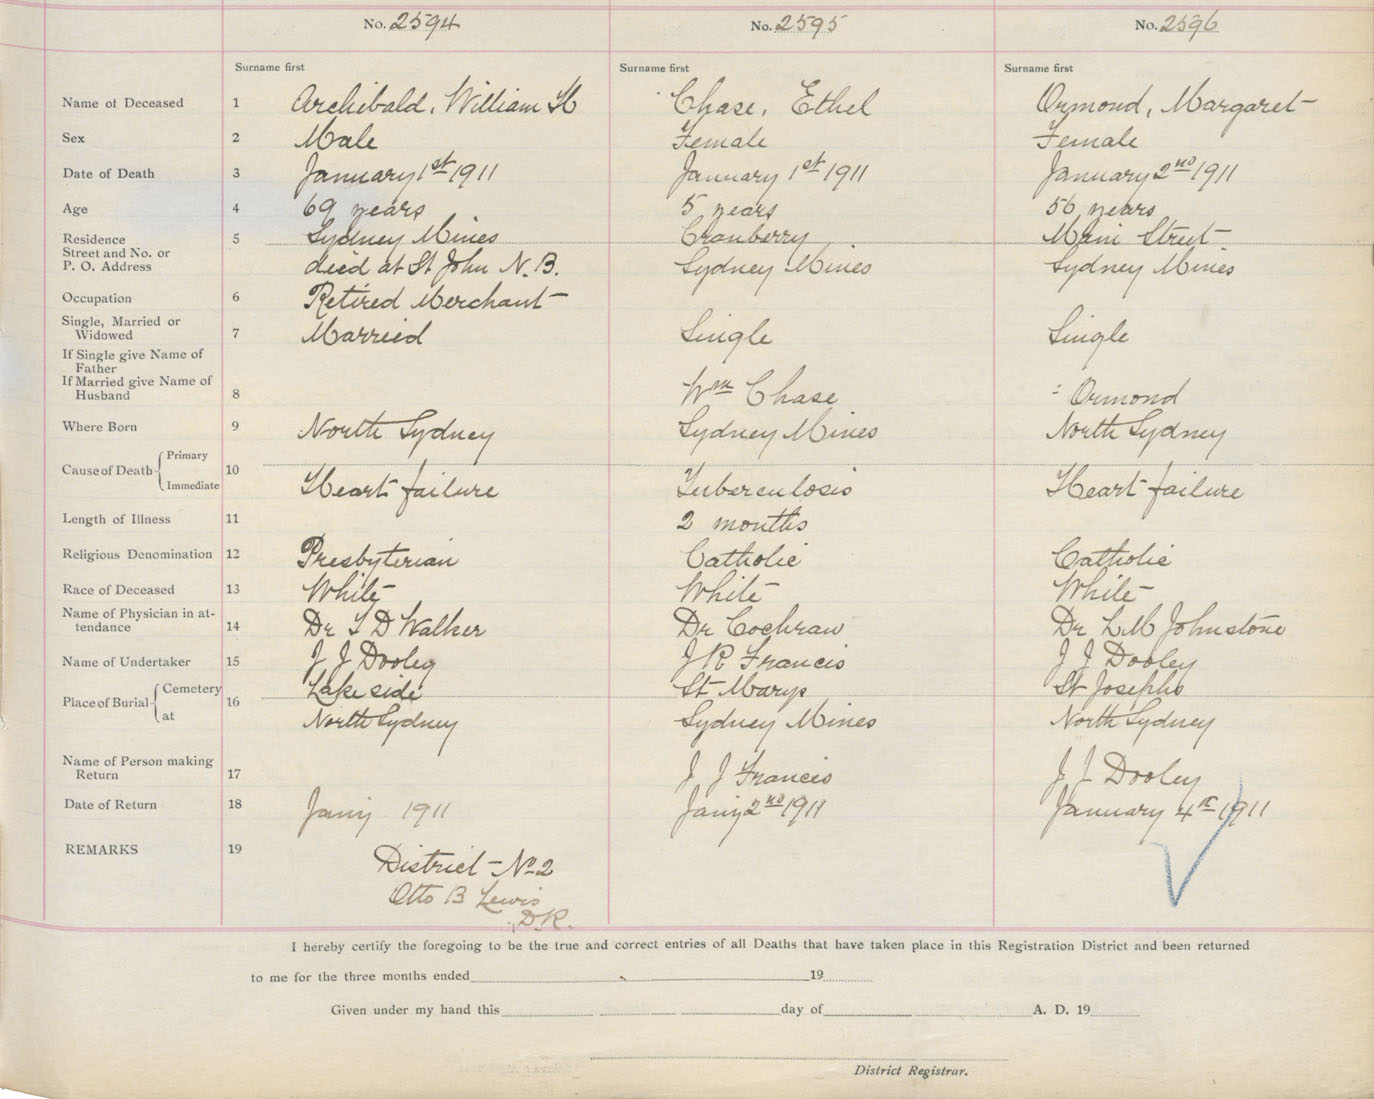 No. 2594 No. 2595 No. 2596
Surname first Surname first Surname first
Name of Deceased 1 Archibald, William H Chase, Ethel Ormond, Margaret
Sex 2 Male Female Female
Date of Death 3 January 1st 1911 January 1st 1911 January 2nd 1911
Age 4 69 years 5 years 56 years
Residence 5 Sydney Mines Cranberry Main Street
Street and No. or
P. O. Address died at St John N. B. Sydney Mines Sydney Mines
Occupation 6 Retired Merchant
Single, Married or
Widowed 7 Married Single Single
If Single give Name of
Father
If Married give Name of
Husband 8 Wm Chase Ormond
Where Born 9 North Sydney Sydney Mines North Sydney
Cause of Death Primary
10
Immediate Heart failure Tuberculosis Heart failure
Length of Illness 11 2 months
Religious Denomination 12 Presbyterian Catholic Catholic
Race of Deceased 13 White White White
Name of Physician in at-
tendance 14 Dr T D Walker Dr Cochran Dr L M Johnstone
Name of Undertaker 15 J J Dooley J R Francis J J Dooley
Place of Burial Cemetery 16 Lakeside St Marys St Josephs
at North Sydney Sydney Mines North Sydney
Name of Person making
Return 17 J J Francis J J Dooley
Date of Return 18 Jany 1911 Jany 2nd 1911 January 4th 1911
REMARKS 19
District No 2
Otto B Lewis
D.R.
I hereby certify the foregoing to be the true and correct entries of all Deaths that have taken place in this Registration District and been returned
to me for the three months ended 19
Given under my hand this day of A. D. 19
District Registrar.